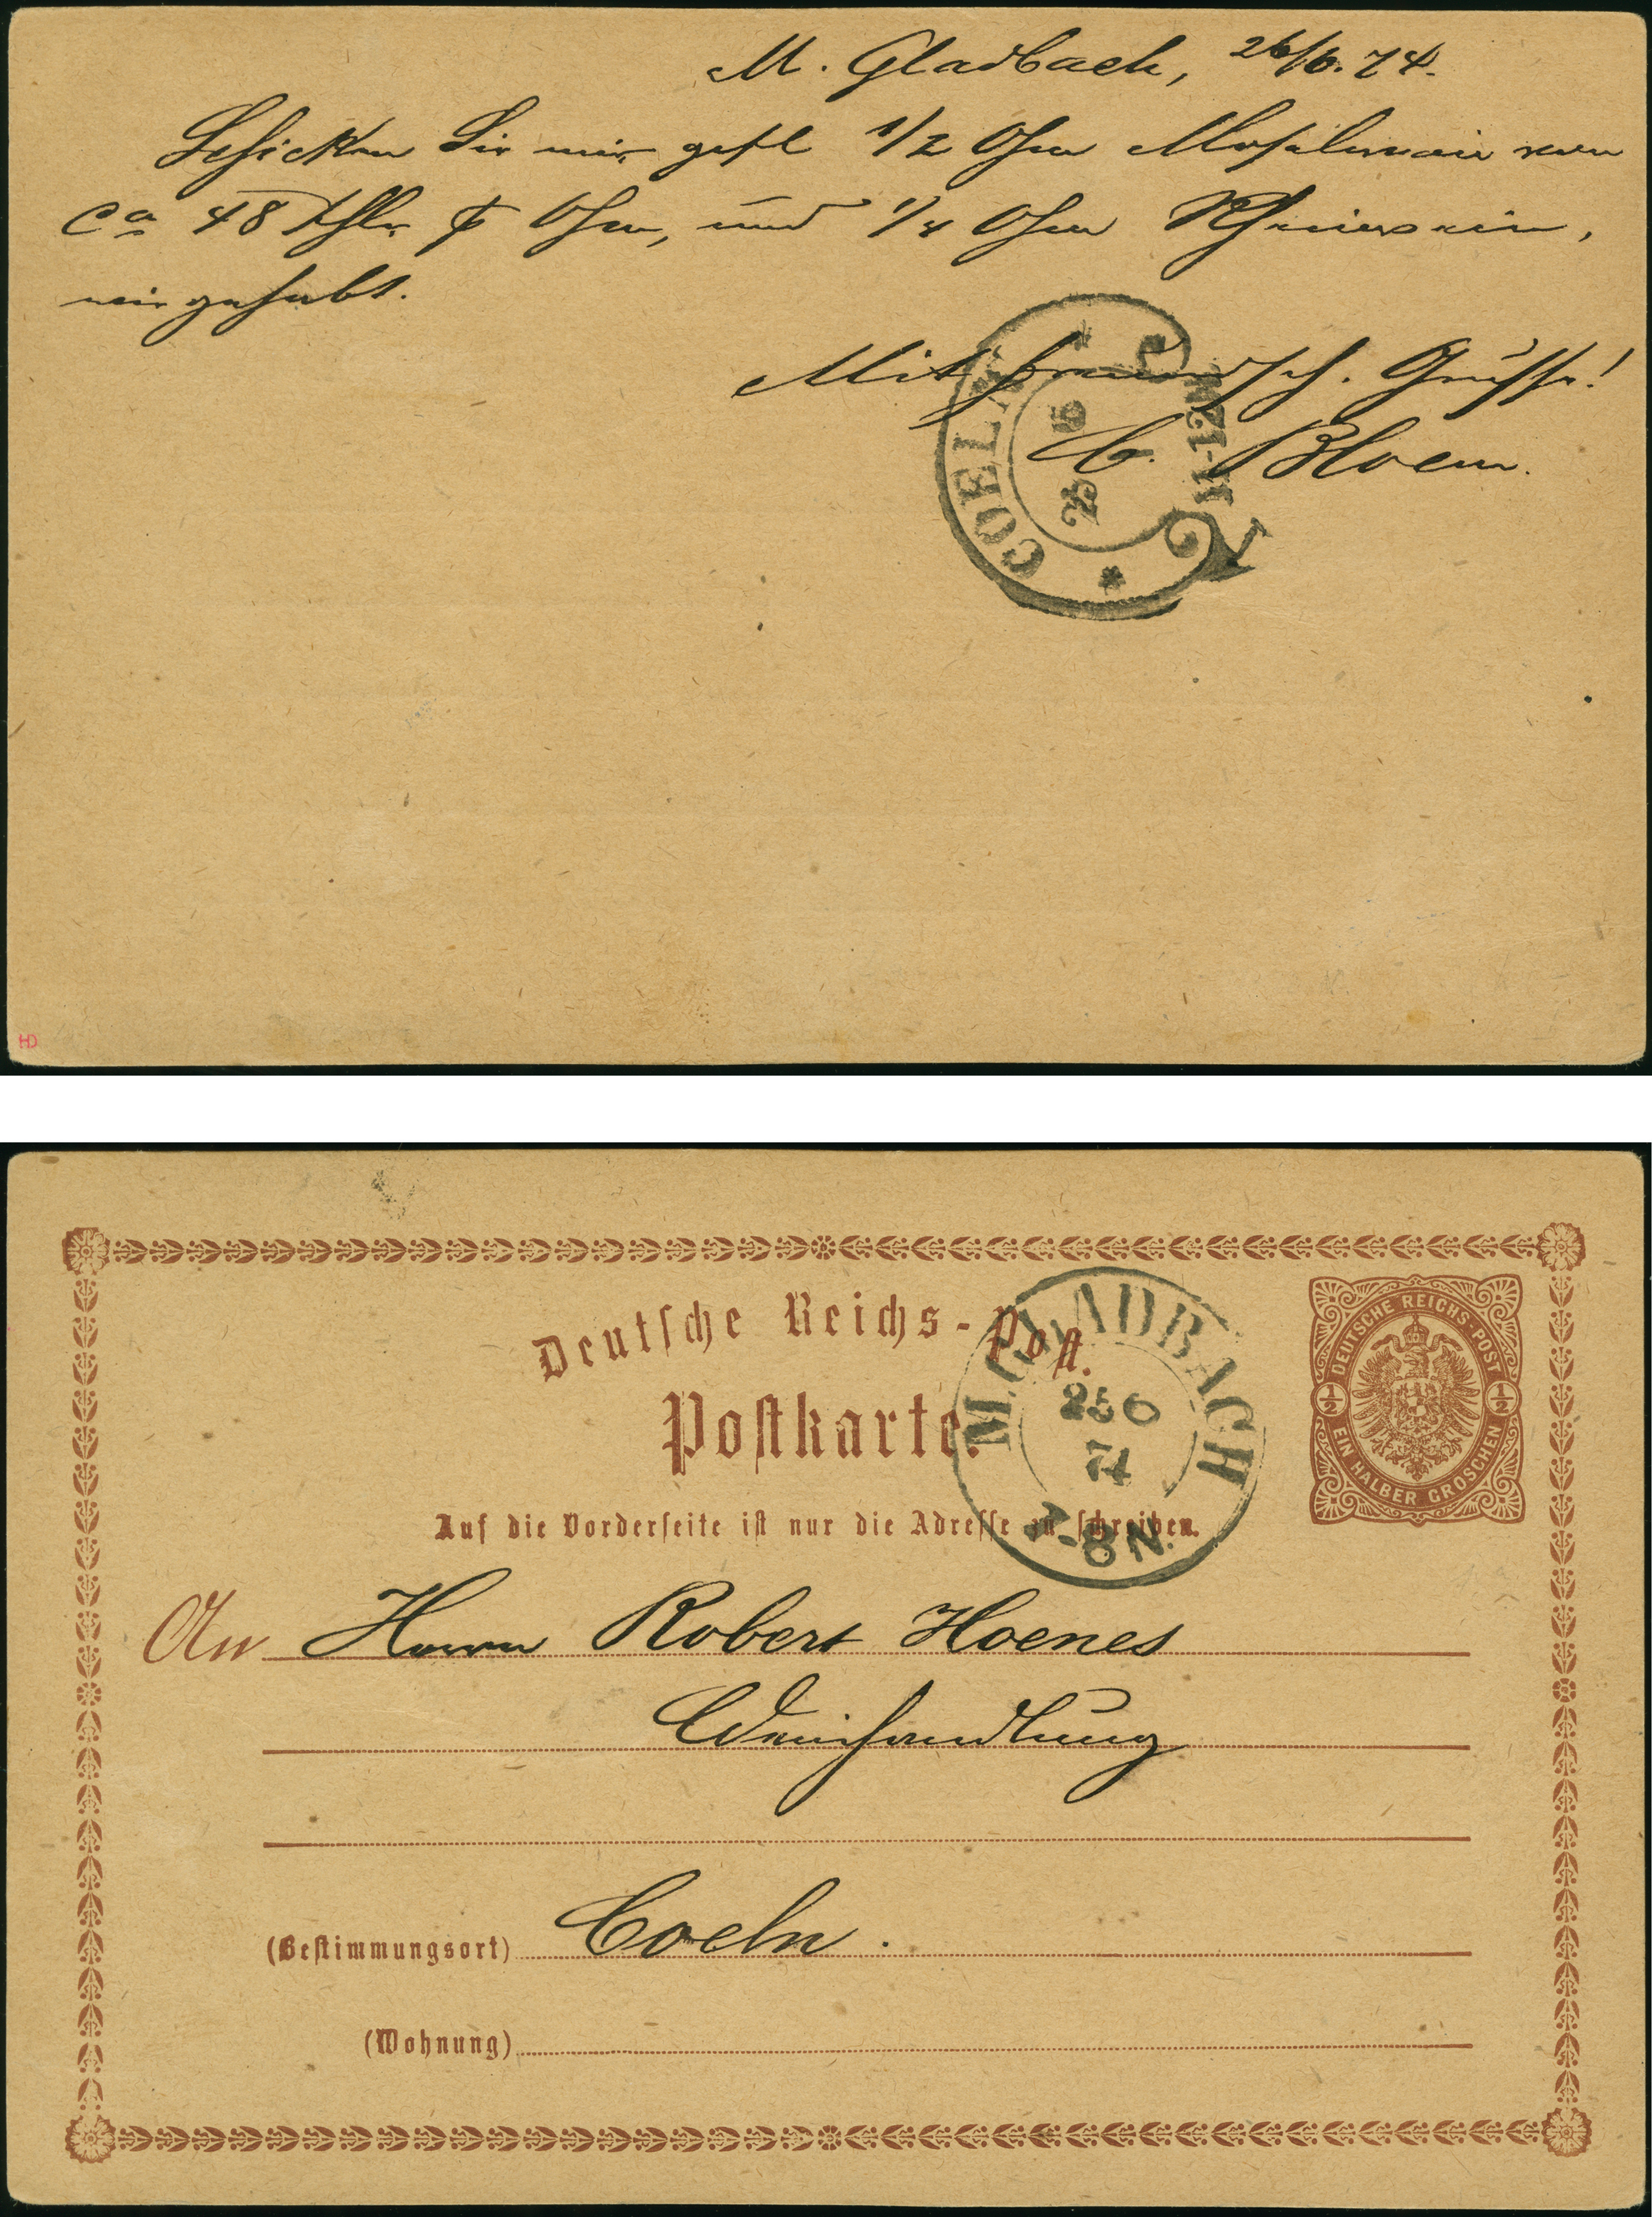 M. Gladbach, 26/6.74.
Schicken Sie mir gefl 1/2 Ohm Moselwein von
ca 48 Thlr p Ohm, und 1/4 Ohm Rheinwein,
wie gehabt.
Mit freundsch. Grüsse!
C. Bloem.
COELN
25 6
11-12
N
HD
Deutsche Reichs-Post.
Postkarte.
Auf die Vorderseite ist nur die Adresse zu schreiben.
M.GLADBACH
25 6
74
7-8 N.
DEUTSCHE REICHS-POST
1/2 1/2
EIN HALBER GROSCHEN
An Herrn Robert Hoenes
Weinhandlung
(Bestimmungsort) Coeln.
(Wohnung)